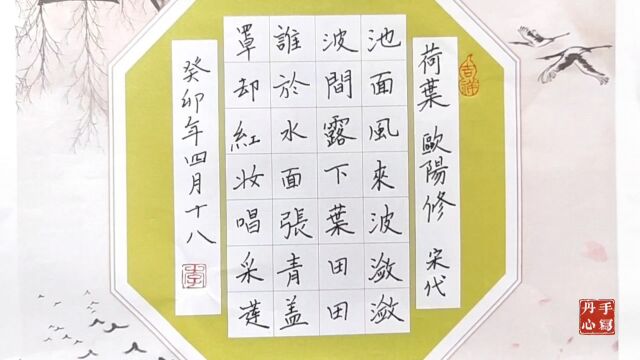 荷葉 歐陽修 宋代
池面風來波潋潋
波間露下葉田田
誰於水面張青盖
罩却紅妝唱采莲
癸卯年四月十八
吉祥
手写
丹心